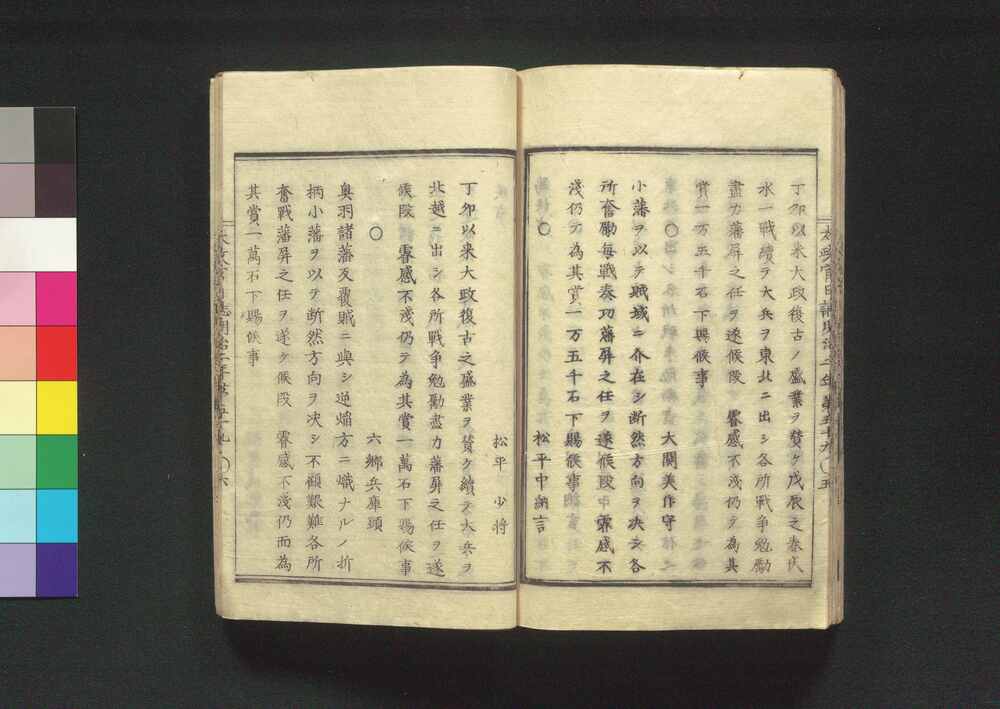 丁卯以来大政復古ノ盛業ヲ賛ケ戊辰之春伏
水一戦續テ大兵ヲ東北ニ出シ各所戦争勉勵
盡力藩屏之任ヲ遂候段　睿感不淺仍テ為其
賞一万五千石下賜候事
〇　大関美作守
小藩ヲ以テ賊域ニ介在シ断然方向ヲ决シ各
所奮勵毎戦奏功藩屏之任ヲ遂候段　睿感不
淺仍テ為其賞一万五千石下賜候事
〇　松平中納言
太政官日誌明治二年　第五十九　〇五
松平　少将
丁卯以来大政復古之盛業ヲ賛ケ續テ大兵ヲ
北越ニ出シ各所戦争勉勵盡力藩屏之任ヲ遂
候段　睿感不淺仍テ為其賞一萬石下賜候事
〇　六郷兵庫頭
奥羽諸藩反覆賊ニ與シ逆焔方ニ熾ナルノ折
柄小藩ヲ以テ断然方向ヲ决シ不顧艱難各所
奮戦藩屏之任ヲ遂ケ候段　睿感不淺仍而為
其賞一萬石下賜候事
太政官日誌明治二年第五十九　〇六